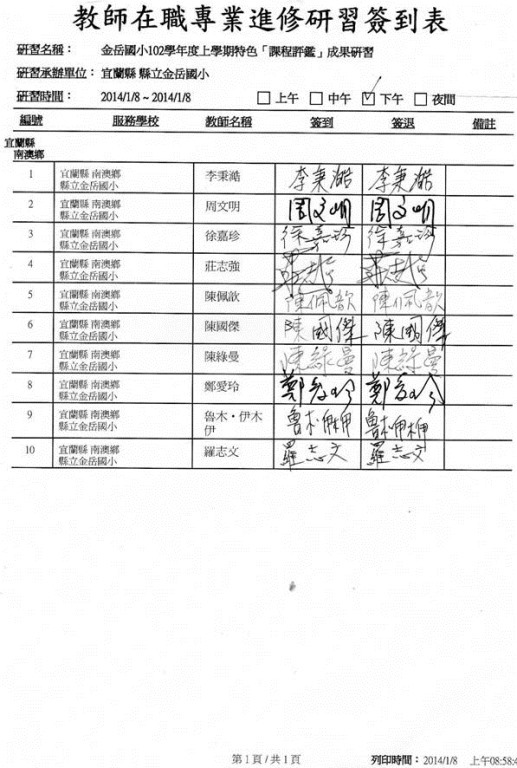 教師在職專業進修研習簽到表
研習名稱： 金岳國小102學年度上學期特色「課程評鑑」成果研習
研習承辦單位： 宜蘭縣 縣立金岳國小
研習時間： 2014/1/8 ~ 2014/1/8 □ 上午 □ 中午 ☑ 下午 □ 夜間
編號 服務學校 教師名稱 簽到 簽退 備註
宜蘭縣
南澳鄉
1 宜蘭縣 南澳鄉 李秉澔 李秉澔 李秉澔
縣立金岳國小
2 宜蘭縣 南澳鄉 周文明 周文明 周文明
縣立金岳國小
3 宜蘭縣 南澳鄉 徐嘉珍 徐嘉珍 徐嘉珍
縣立金岳國小
4 宜蘭縣 南澳鄉 莊志強
縣立金岳國小
5 宜蘭縣 南澳鄉 陳佩歆 陳佩歆 陳佩歆
縣立金岳國小
6 宜蘭縣 南澳鄉 陳國傑 陳國傑 陳國傑
縣立金岳國小
7 宜蘭縣 南澳鄉 陳綠曼 陳綠曼 陳綠曼
縣立金岳國小
8 宜蘭縣 南澳鄉 鄭愛玲 鄭愛玲 鄭愛玲
縣立金岳國小
9 宜蘭縣 南澳鄉 魯木・伊木
縣立金岳國小 伊
10 宜蘭縣 南澳鄉 羅志文 羅志文 羅志文
縣立金岳國小
第 1 頁 / 共 1 頁 列印時間： 2014/1/8 上午08:58:4